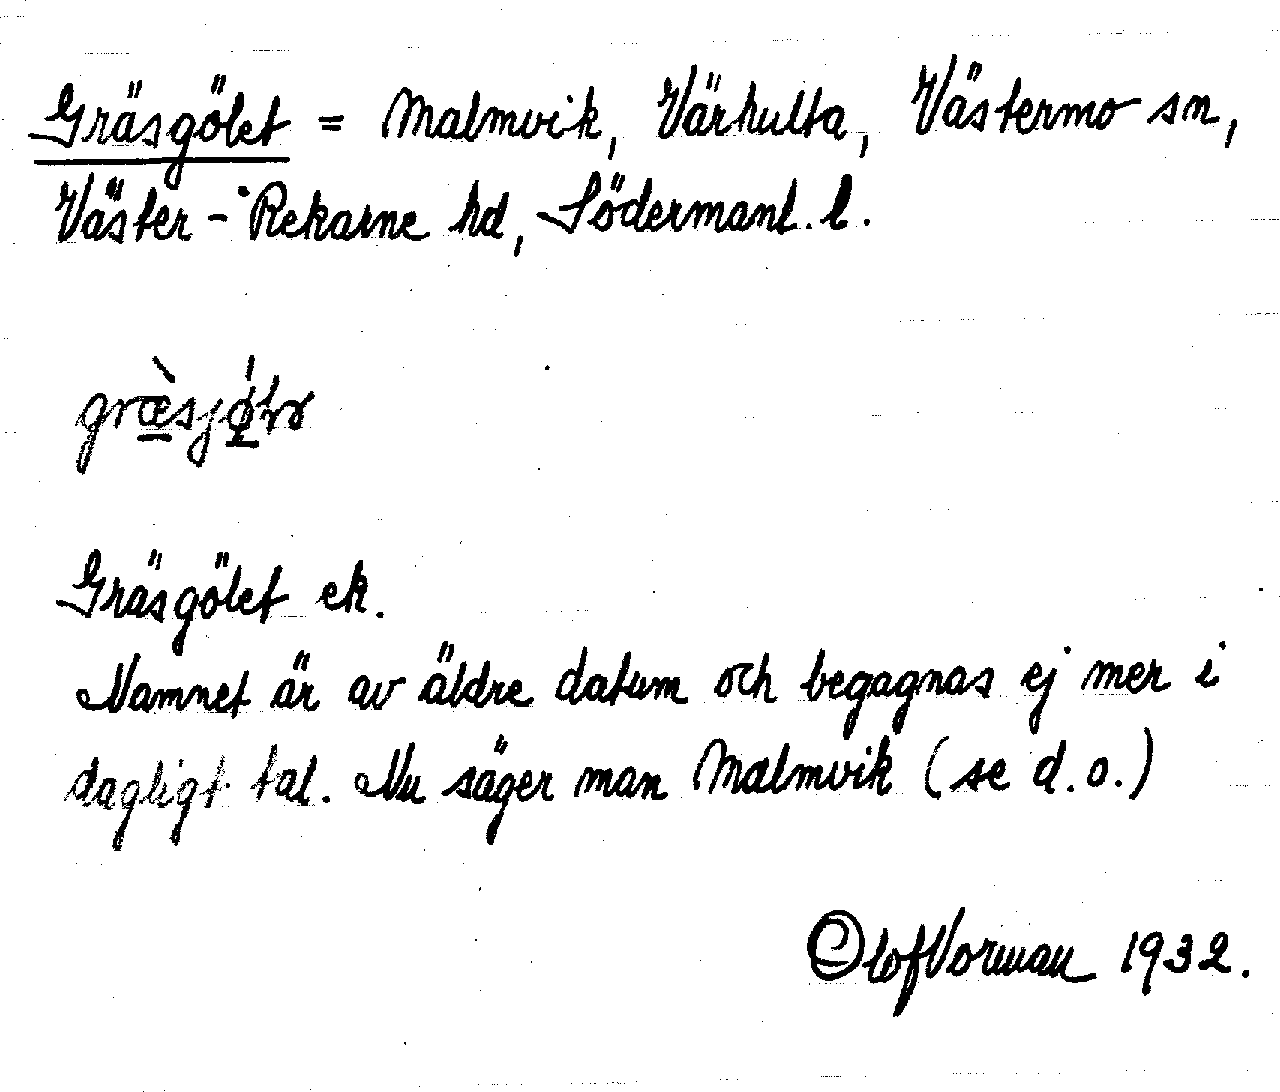 Gräsgölet = Malmvik, Värhulta, Västermo sn,
Väster-Rekarne hd, Södermanl. l.
Gräsgölet ek.
Namnet är av äldre datum och begagnas ej mer i
dagligt tal. Nu säger man Malmvik (se d.o.)
Olof Vorman 1932.